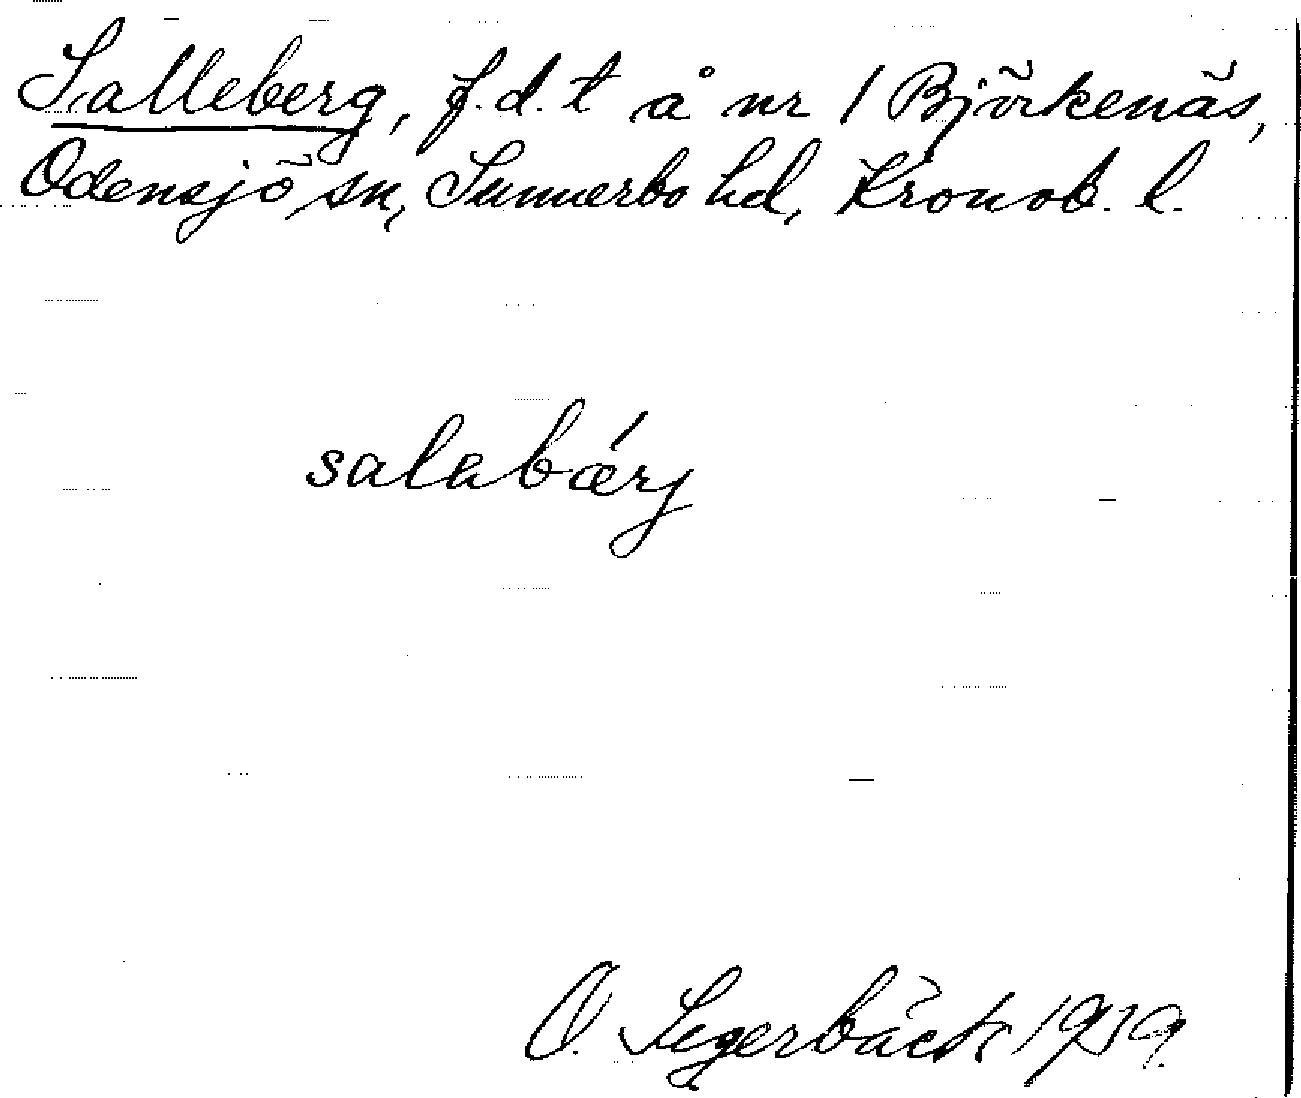 Salleberg, f.d. t å nr 1 Björkenäs,
Odensjö sn, Sunnerbo hd, Kronob. l.
salabǽrj
O. Segerbäck 1939.